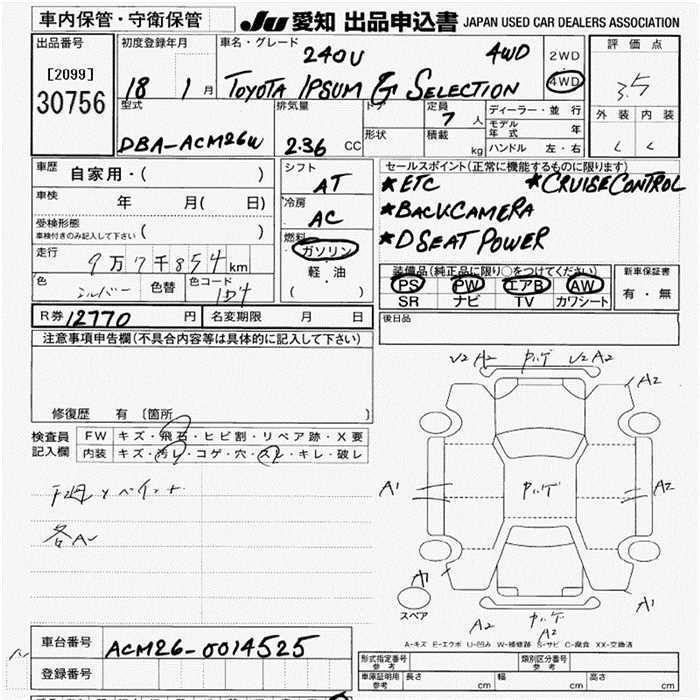 車内保管・守衛保管 JU 愛知 出品申込書 JAPAN USED CAR DEALERS ASSOCIATION
出品番号
[2099]
30756
初度登録年月
18 1 月
車名・グレード
240u 4WD
TOYOTA IPSUM G SELECTION
2WD
4WD
評価点
3.5
外装 内装
型式
DBA-ACM26W
排気量
2.36 CC
ドア
形状
定員
7 人
積載
kg
ディーラー・並行
モデル年式 年
ハンドル 左・右
車歴
自家用・( )
車検
年 月( 日)
受検形態
車検付きのみ記入して下さい ( )
走行
9万7千854km
色
シルバー
色替
色コード
1D4
シフト
AT
冷房
AC
燃料
ガソリン
・
軽・油
( )
セールスポイント(正常に機能するものに限ります)
*ETC *CRUISE CONTROL
*BACK CAMERA
*D SEAT POWER
装備品(純正品に限り○をつけてください)
PS PW エアB AW
SR ナビ TV カワシート
新車保証書
有・無
R券 12770 円
名変期限 月 日
後日品
注意事項申告欄(不具合内容等は具体的に記入して下さい)
修復歴 有 〔箇所 〕
検査員記入欄
FW キズ・飛石・ヒビ割・リペア跡・X要
内装 キズ・汚レ・コゲ・穴・スレ・キレ・破レ
各A
A2 A2
A2
A1 A2
A1
A1
A2
A2
スペア
A-キズ E-エクボ U-凹み W-補修跡 S-サビ C-腐食 XX-交換済
車台番号
ACM26-0014525
登録番号
形式指定番号
参考
類別区分番号
参考
車庫証明用
参考
長さ cm 幅 cm 高さ cm